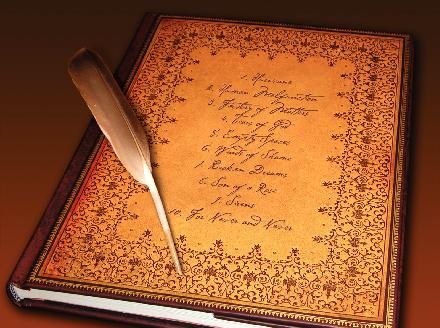 1. Hurricane
2. Human Malfunction
3. Matter of Matters
4. Tears of God
5. Empty Spaces
6. Winds of Shame
7. Broken Dreams
8. Son of a Rose
9. Sirens
10. For Never and Never